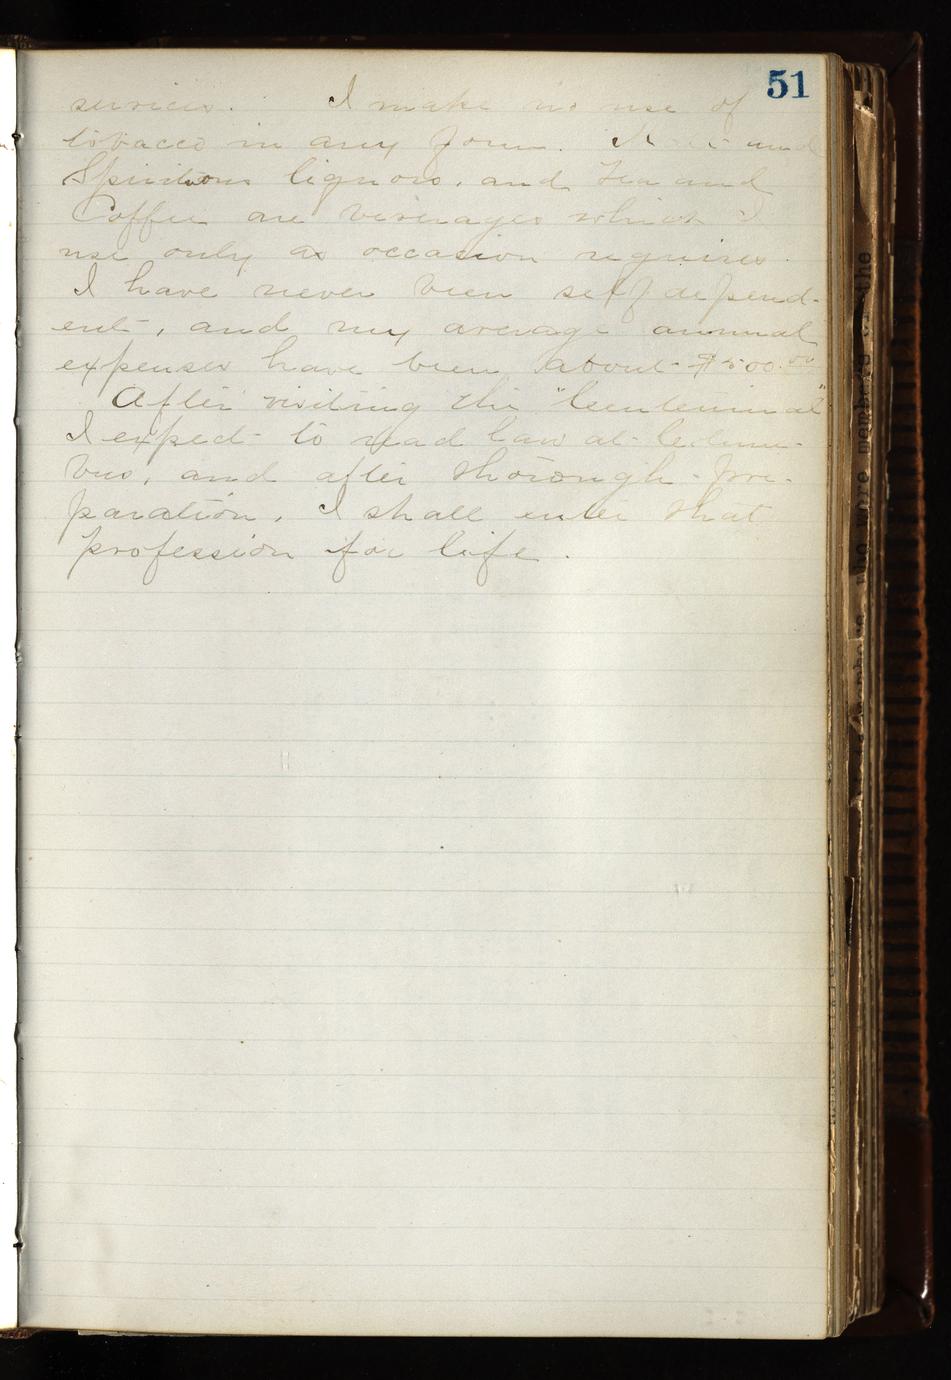 51
services. I make no use of
tobacco in any form. Malt and
Spirituous liquors, and Tea and
Coffee are beverages which I
use only as occasion requires.
I have never been self depend-
ent, and my average annual
expenses have been about $500.00
After visiting the "Centennial"
I expect to read law at Colum-
bus, and after thorough pre-
paration, I shall enter that
profession for life.
who were members of the